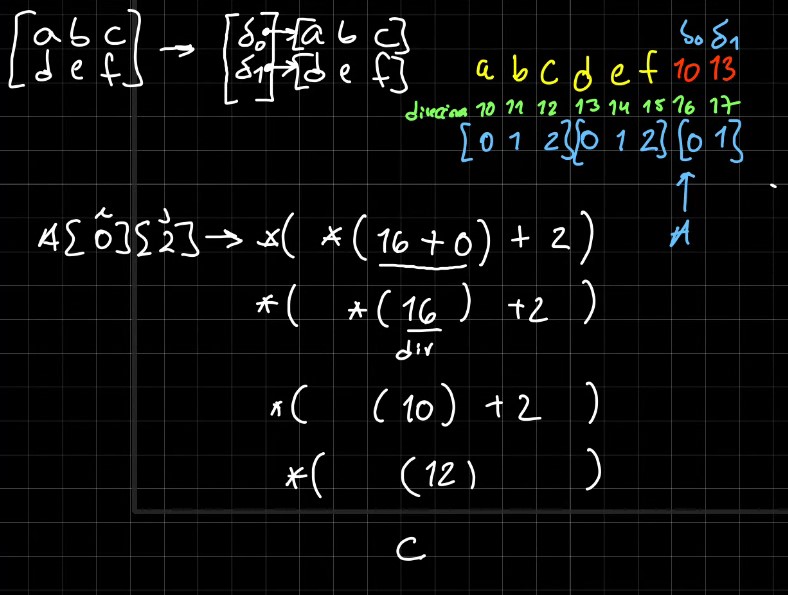 [a b c
d e f] → [δ₀→[a b c]
δ₁]→[d e f]
δ₀ δ₁
a b c d e f 10 13
10 11 12 13 14 15 16 17
[0 1 2][0 1 2][0 1]
A
i j
A[0][2] → *( *(16+0) + 2 )
*( *(16) +2 )
dir
*( (10) +2 )
*( (12) )
c